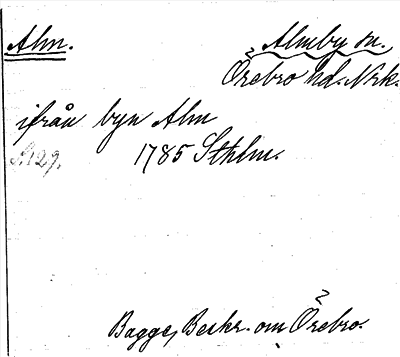 Alm.
Almby sn.
Örebro hd. Nrk.
ifrån byn Alm
S. 129. 1785 Sthlm.
Bagge, Beskr. om Örebro.